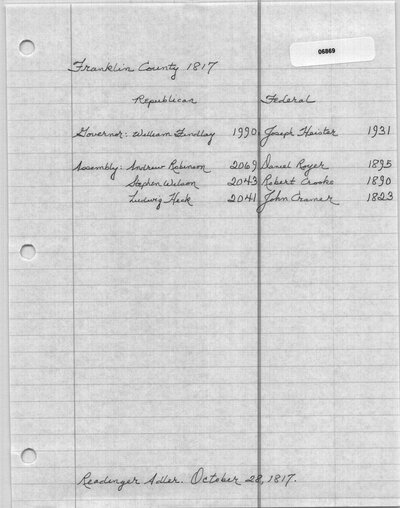 06869
Franklin County 1817
Republican Federal
Governor: William Findlay 1990 Joseph Heister 1931
Assembly: Andrew Robinson 2069 Daniel Royer 1895
Stephen Wilson 2043 Robert Crooks 1890
Ludwig Heck 2041 John Cramer 1823
Readinger Adler. October 28, 1817.